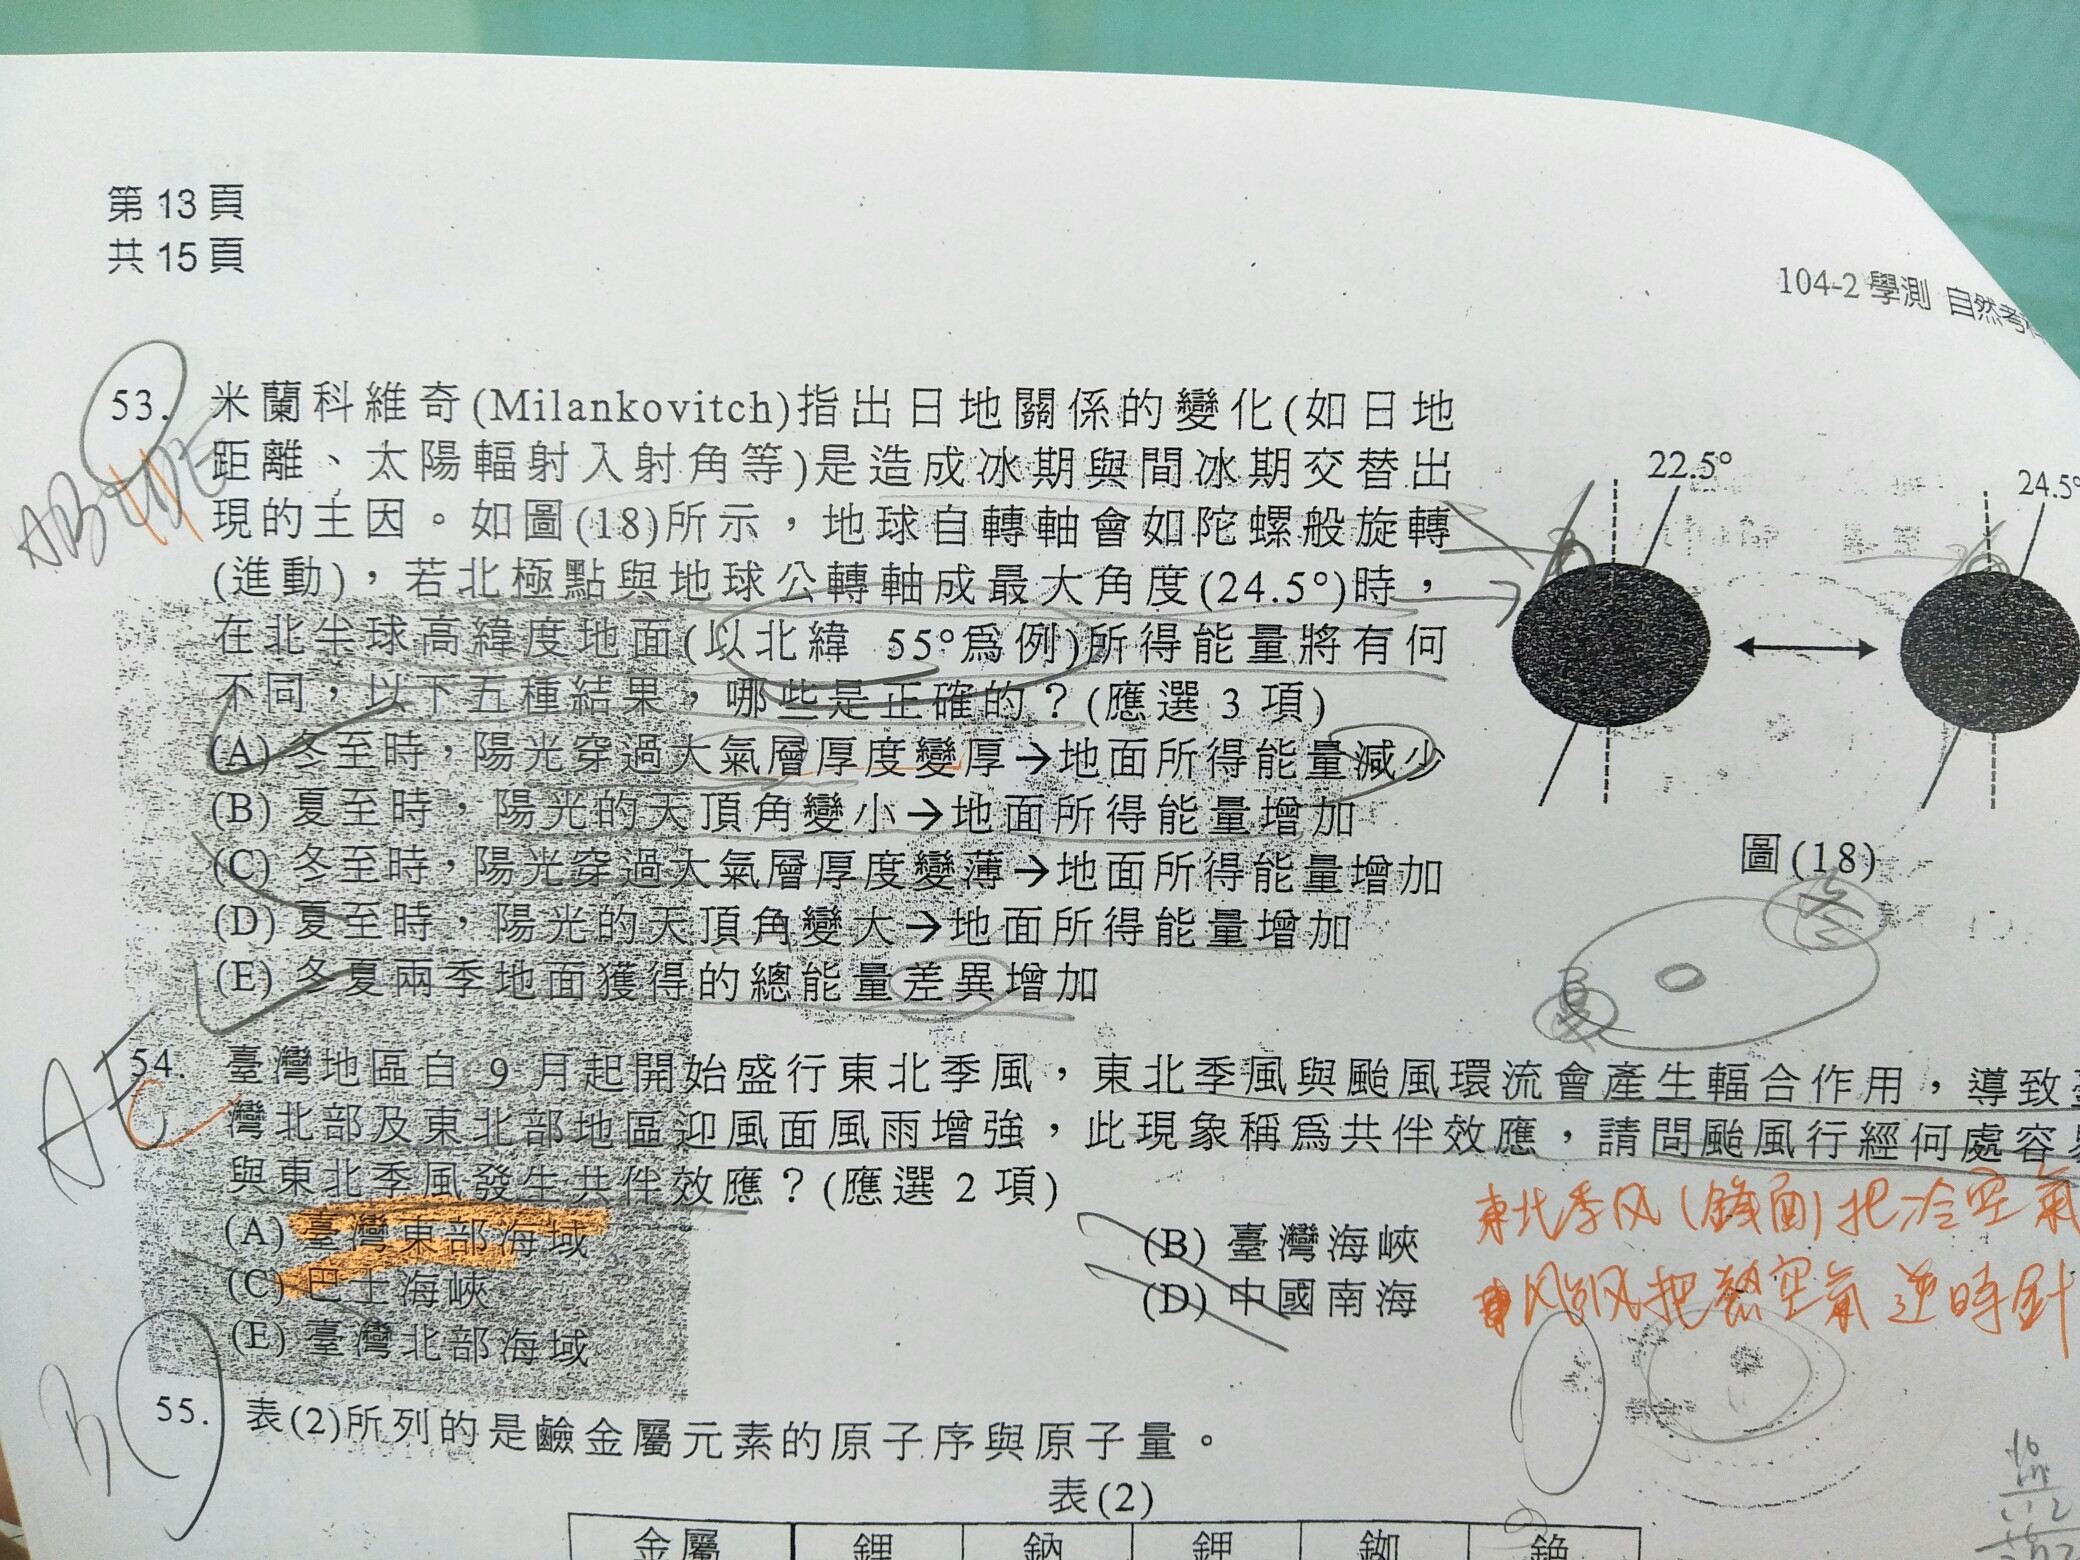 第 13 頁
共 15 頁
104-2 學測 自然考
53. 米蘭科維奇(Milankovitch)指出日地關係的變化(如日地
距離、太陽輻射入射角等)是造成冰期與間冰期交替出
現的主因。如圖(18)所示，地球自轉軸會如陀螺般旋轉
(進動)，若北極點與地球公轉軸成最大角度(24.5°)時，
在北半球高緯度地面(以北緯 55°爲例)所得能量將有何
不同，以下五種結果，哪些是正確的？(應選 3 項)
(A) 冬至時，陽光穿過大氣層厚度變厚→地面所得能量減少
(B) 夏至時，陽光的天頂角變小→地面所得能量增加
(C) 冬至時，陽光穿過大氣層厚度變薄→地面所得能量增加
(D) 夏至時，陽光的天頂角變大→地面所得能量增加
(E) 冬夏兩季地面獲得的總能量差異增加
22.5°
24.5°
圖(18)
冬
夏
AB
E
54. 臺灣地區自 9 月起開始盛行東北季風，東北季風與颱風環流會產生輻合作用，導致臺
灣北部及東北部地區迎風面風雨增強，此現象稱爲共伴效應，請問颱風行經何處容易
與東北季風發生共伴效應？(應選 2 項)
(A) 臺灣東部海域
(B) 臺灣海峽
(C) 巴士海峽
(D) 中國南海
(E) 臺灣北部海域
AE
C
東北季风(鋒面)把冷空氣
风把熱空氣 逆時針
B
55. 表(2)所列的是鹼金屬元素的原子序與原子量。
表(2)
金屬 鋰 鈉 鉀 銣 銫